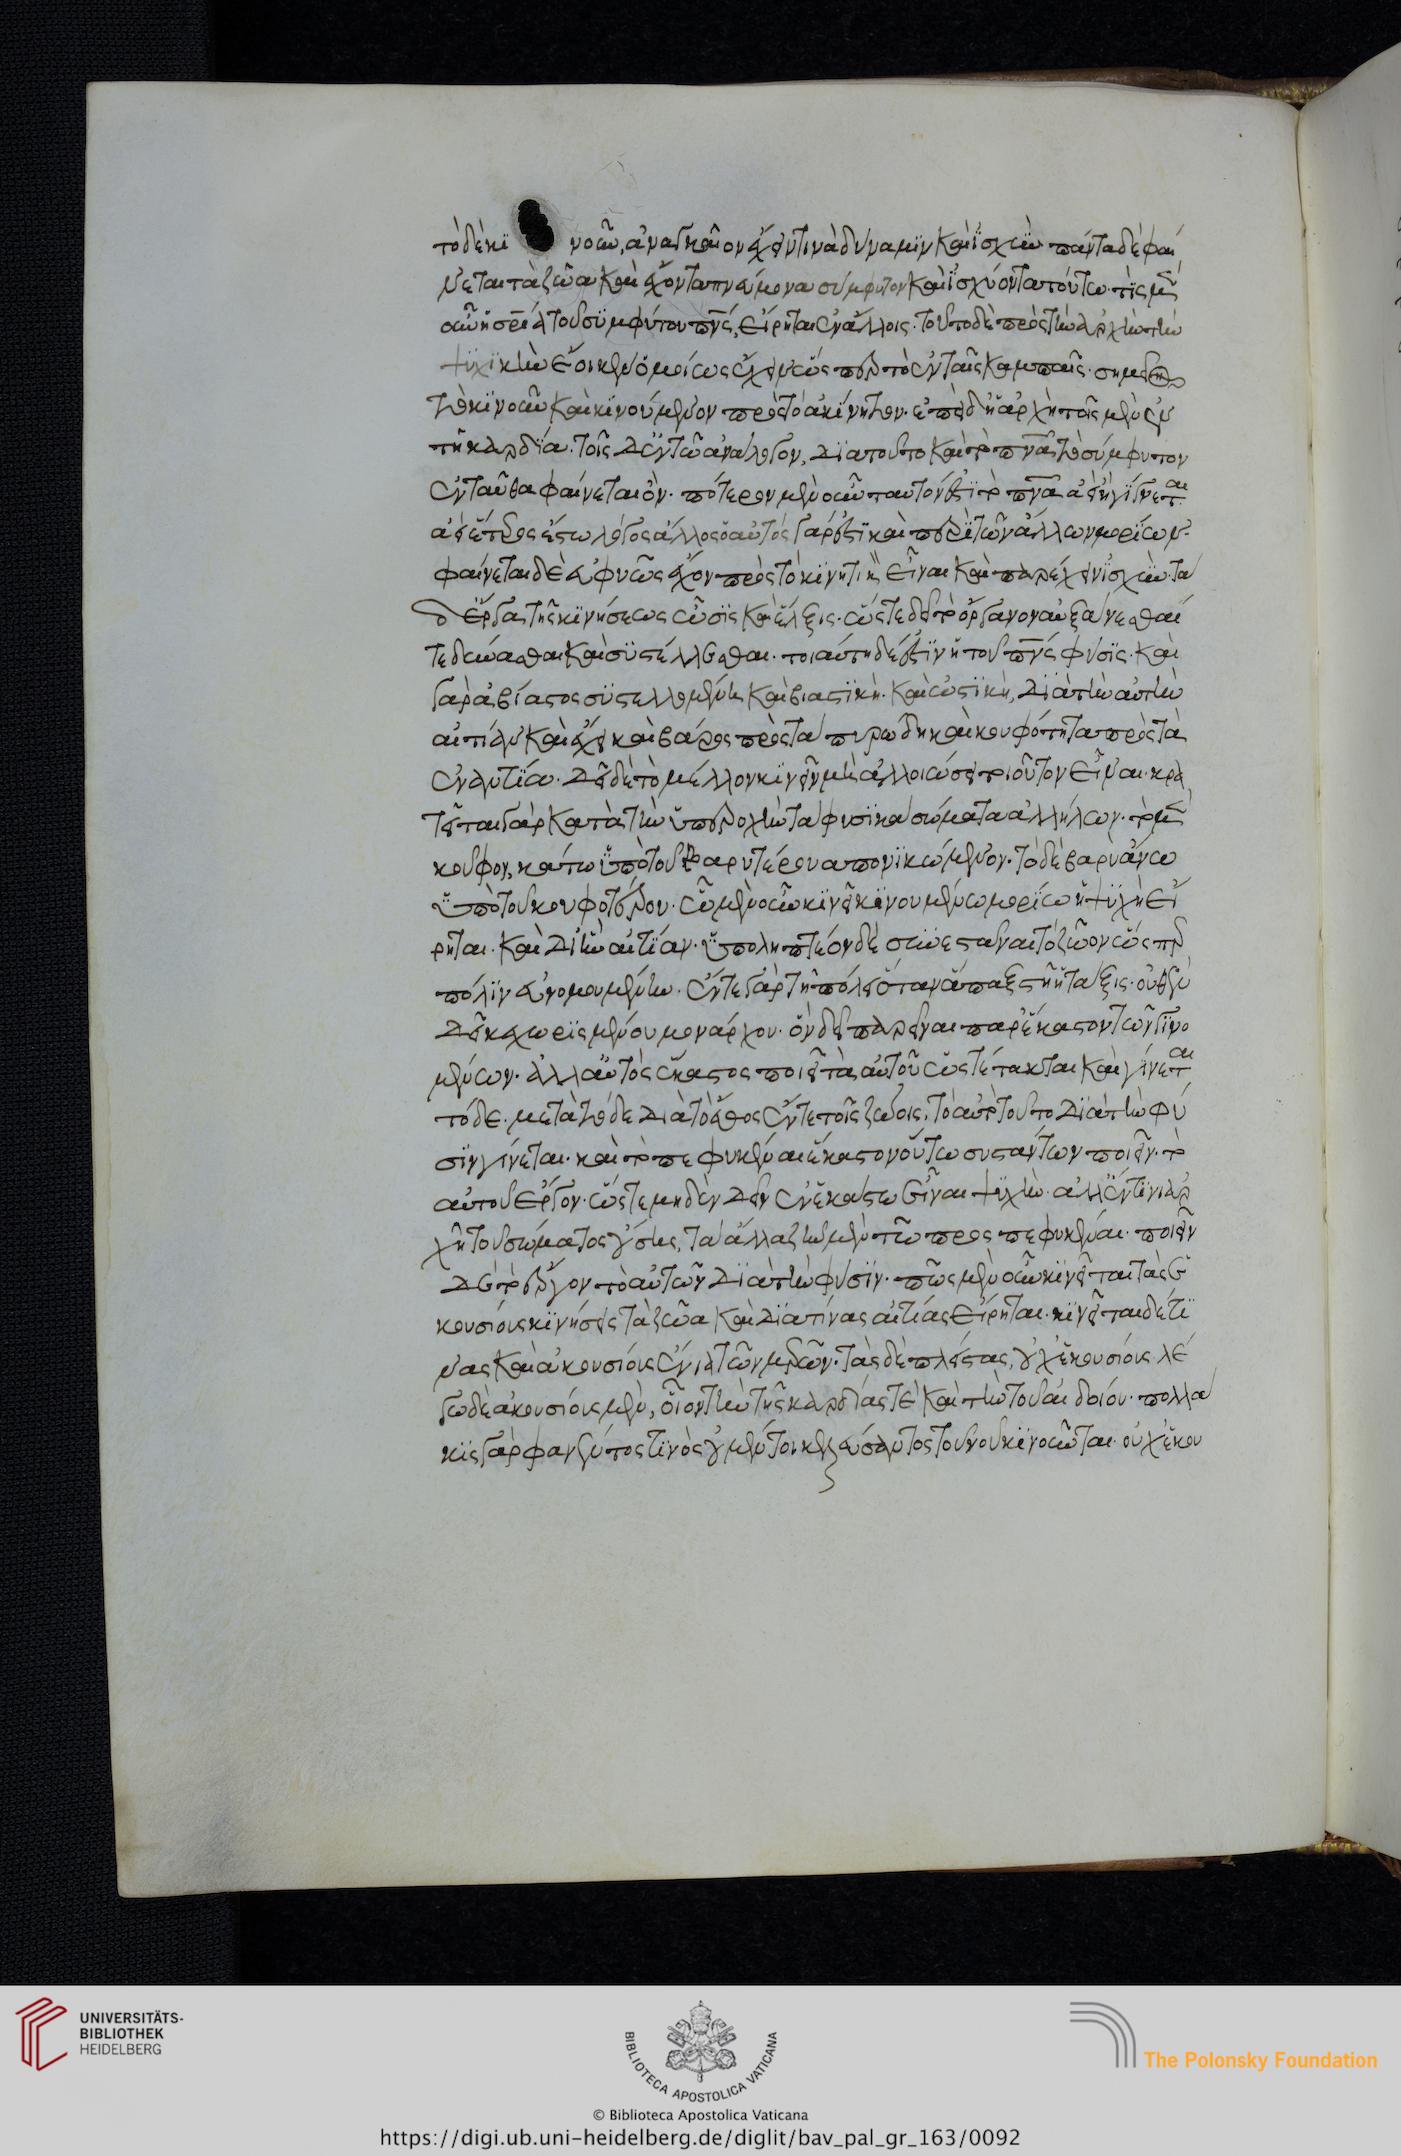 τὸ δὲ κϊ νοῦν, ἀναγκαῖον ἔχειν τινὰ δύναμϊν καὶ ἰσχὺν πάντα δὲ φαί
νεται τὰ ζῶα καὶ ἔχοντα πνεύμονα σύμφυτον καὶ ἰσχύοντα τούτω. τὶς μὲν
οὖν ἡ σρία τοῦ συμφύτου πνς, εἴρηται ἐν ἄλλοις. τοῦτο δὲ πρὸς τὴν ἀρχὴν τὴν
ψυχϊκὴν ἔοικεν ὁμοίως ἔχειν ὥσπερ τὸ ἐν ταῖς καμπαῖς. σημεῖον
τὸ κϊνοῦν καὶ κϊνούμενον πρὸς τὸ ἀκίνητον. ἐπειδὴ ἀρχὴ τοῖς μὲν ἐν
τῇ καρδία. τοῖς δ' ἐν τῶ ἀνάλογον, διὰ τοῦτο καὶ τὸ πνα τὸ σύμφυτον
ἐνταῦθα φαίνεται ὄν. πότερον μὲν οὖν ταυτόν ἐστϊ τὸ πνα ἀεὶ ἢ γίνεται
ἀεὶ ἕτερος ἔστω λόγος ἄλλος ὁ αὐτός γάρ ἐστϊ καὶ περὶ τῶν ἄλλων μορίων.
φαίνεται δὲ εὐφυῶς ἔχον πρὸς τὸ κϊνητικὸν εἶναι καὶ παρέχειν ἰσχύν. τὰ
δ' ἔργα τῆς κϊνήσεως ὦσϊς καὶ ἕλξις. ὥστε δεῖ τὸ ὄργανον αὐξάνεσθαί
τε δύνασθαι καὶ συστέλλεσθαι. τοιαύτη δέ ἐστϊν ἡ τοῦ πνς φύσϊς. καὶ
γὰρ ἀβίαστος συστελλομένη καὶ βιαστϊκή. καὶ ὠστϊκὴ, διὰ τὴν αὐτὴν
αἰτίαν καὶ ἔχει καὶ βάρος πρὸς τὰ πυρώδη καὶ κουφότητα πρὸς τὰ
ἐναντία. δεῖ δὲ τὸ μέλλον κϊνεῖν μὴ ἀλλοιώσει τοιοῦτον εἶναι. κρα
τεῖται γὰρ κατὰ τὴν ὑπεροχὴν τὰ φυσϊκὰ σώματα ἀλλήλων. τὸ μὲν
κοῦφον, κάτω ὑπὸ τοῦ βαρυτέρου απονϊκώμενον. τὸ δὲ βαρὺ ἄνω
ὑπὸ τοῦ κουφοτέρου. ὧ μὲν οὖν κϊνεῖ κϊνουμένω μορίω ἡ ψυχὴ εἴ
ρηται. καὶ δι' ἣν αἰτίαν. ὑποληπτέον δὲ συνεστάναι τὸ ζῶον ὥσπερ
πόλϊν εὐνομουμένην. ἔν τε γὰρ τῇ πόλει ὅταν ἅπαξ στῇ ἡ τάξις. οὐθὲν
δεῖ κεχωρϊσμένου μονάρχου. ὃν δεῖ παρεῖναι παρ' ἕκαστον τῶν γϊνο
μένων. ἀλλ' αὐτὸς ἕκαστος ποιεῖ τὰ αὐτοῦ ὡς τέτακται καὶ γίνεται
τόδε. μετὰ τόδε διὰ τὸ ἔθος ἔν τε τοῖς ζώοις. τὸ αὐτὸ τοῦτο διὰ τὴν φύ
σϊν γίνεται. καὶ τὸ πεφυκέναι ἕκαστον οὕτω συστάντων ποιεῖν. τὸ
αὐτοῦ ἔργον. ὥστε μηδὲν δεῖν ἐν ἑκάστω εἶναι ψυχήν. ἀλλ' ἔν τινι ἀρ
χῇ τοῦ σώματος οὔσης, τὰ ἄλλα ζῆν μὲν τῶ προσπεφυκέναι. ποιεῖν
δὲ τὸ ἔργον τὸ αὐτῶν διὰ τὴν φύσϊν. πῶς μὲν οὖν κϊνεῖται τὰς ἑ
κουσίους κϊνήσεις τὰ ζῶα καὶ διὰ τίνας αἰτίας εἴρηται. κϊνεῖται δέ τϊ
νας καὶ ἀκουσίους ἔνια τῶν μερῶν. τὰς δὲ πλείστας, οὐχ ἑκουσίους λέ
γω δὲ ἀκουσίους μὲν, οἷον τὴν τῆς καρδίας τὲ καὶ τὴν τοῦ αἰδοίου. πολλά
κϊς γὰρ φανέντος τϊνὸς οὐ μέντοι κελεύσαντος τοῦ νοῦ κϊνοῦνται. οὐχ ἑκου
UNIVERSITÄTS-
BIBLIOTHEK
HEIDELBERG
BIBLIOTECA APOSTOLICA VATICANA
The Polonsky Foundation
© Biblioteca Apostolica Vaticana
https://digi.ub.uni-heidelberg.de/diglit/bav_pal_gr_163/0092